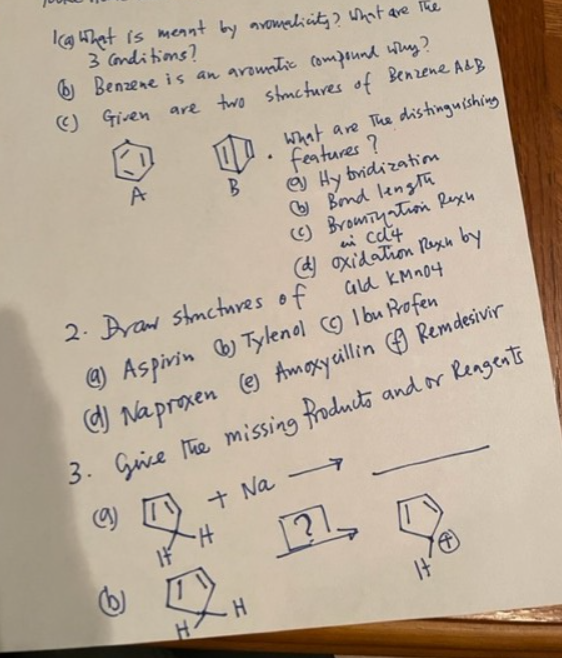 1(a) What is meant by aromaticity? What are The
3 Conditions?
(b) Benzene is an aromatic compound why?
(c) Given are two structures of Benzene A&B
A
B
. What are The distinguishing
features?
(a) Hybridization
(b) Bond length
(c) Bromination Rexn
in CCl4
(d) Oxidation Rexn by
Cold KMnO4
2. Draw structures of
(a) Aspirin (b) Tylenol (c) Ibu Profen
(d) Naproxen (e) Amoxycillin (f) Remdesivir
3. Give The missing Products and or Reagents
(a) H H + Na →
(b) H H ? → H +